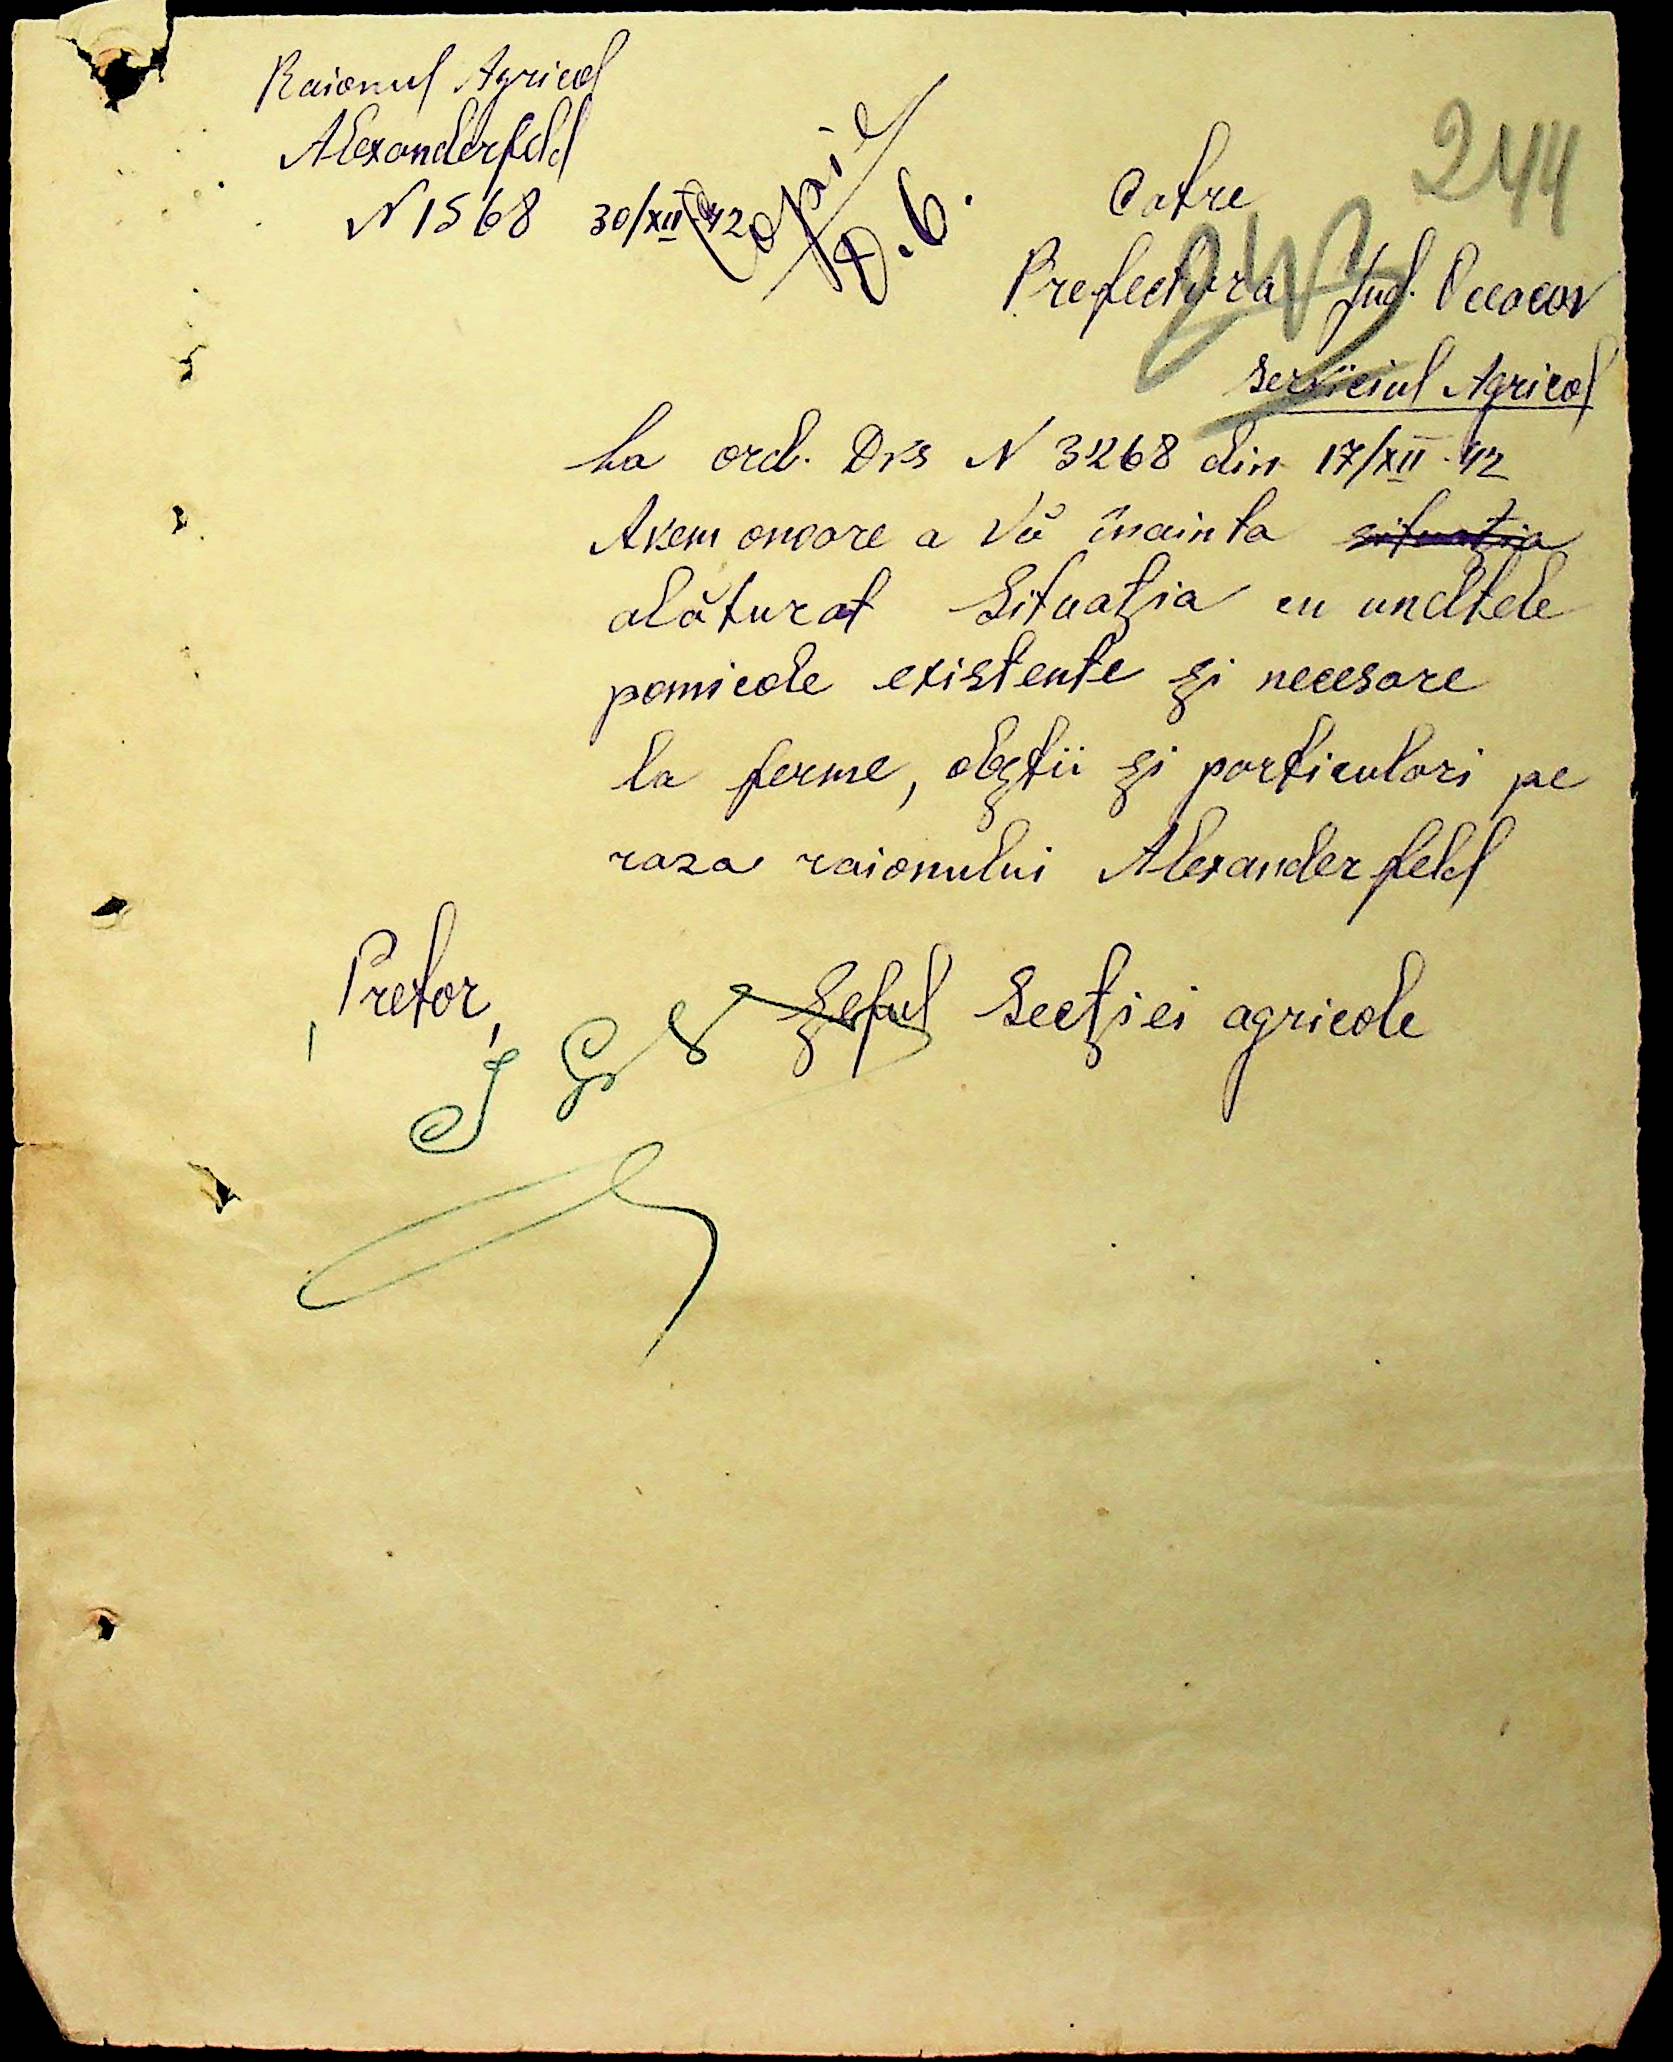 Raionul Agricol
Alexanderfeld
N 1568 30/XII 42
Copie
D. 6.
244
Catre
243
Prefectura Jud. Oceacov
Serviciul Agricol
La ord. Dvs N 3268 din 17/XII 42
Avem onoare a Vă înainta situaţia
alăturat Situaţia cu uneltele
pomicole existente şi necesare
la ferme, obştii şi particulari pe
raza raionului Alexanderfeld
Pretor, Şeful Secţiei agricole